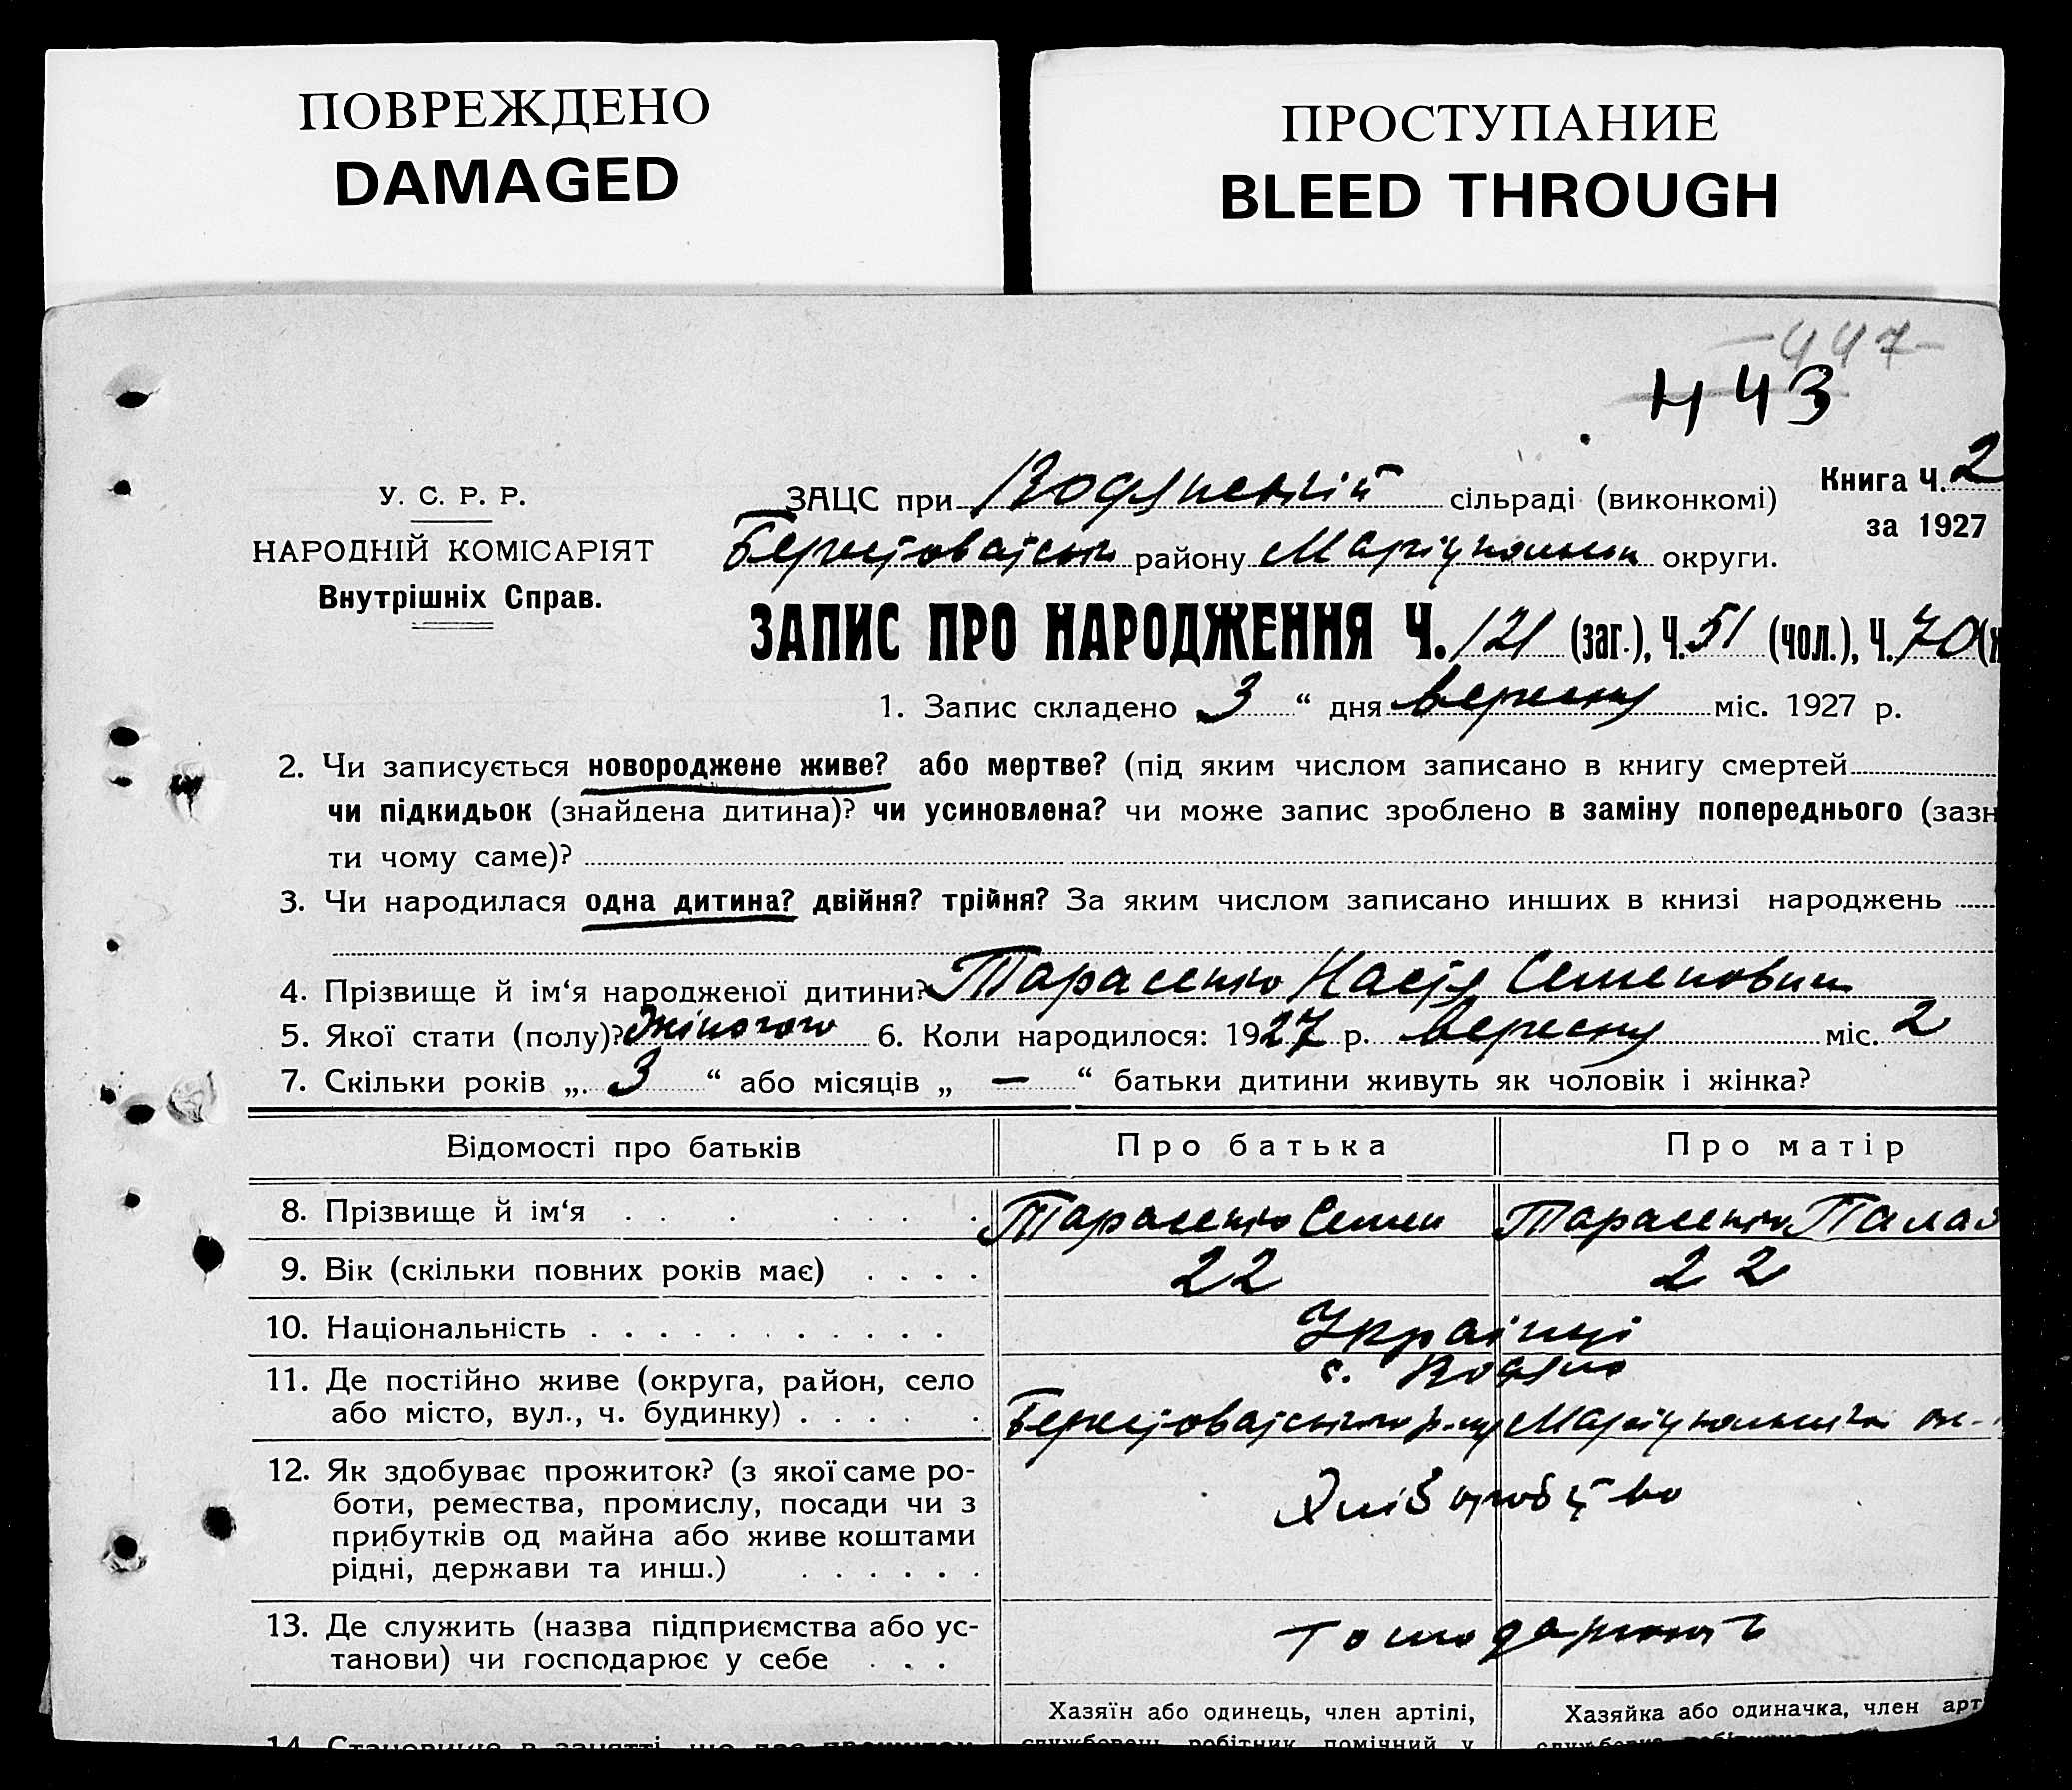 ПОВРЕЖДЕНО
DAMAGED
ПРОСТУПАНИЕ
BLEED THROUGH
447
443
У. С. Р. Р.
НАРОДНІЙ КОМІСАРІЯТ
Внутрішніх Справ.
ЗАЦС при Водянській сільраді (виконкомі)
Книга Ч. 2
за 1927
району округи.
ЗАПИС ПРО НАРОДЖЕННЯ Ч. 121 (заг.), Ч. 51 (чол.), Ч. 70 (
1. Запис складено 3 “ дня вересня міс. 1927 р.
2. Чи записується новороджене живе? або мертве? (під яким числом записано в книгу смертей
чи підкидьок (знайдена дитина)? чи усиновлена? чи може запис зроблено в заміну попереднього (зазн
ти чому саме)?
3. Чи народилася одна дитина? двійня? трійня? За яким числом записано инших в книзі народжень
4. Прізвище й ім‘я народженої дитини? Тарасенко Настя Семеновна
5. Якої стати (полу)? Жіночого 6. Коли народилося: 1927 р. вересня міс. 2
7. Скільки років „ 3 “ або місяців „ — “ батьки дитини живуть як чоловік і жінка?
Відомості про батьків Про батька Про матір
8. Прізвище й ім‘я Тарасенко Семен Тарасенко Палаг
9. Вік (скільки повних років має) 22 22
10. Національність Українці
11. Де постійно живе (округа, район, село с. Водяно
або місто, вул., ч. будинку)
12. Як здобуває прожиток? (з якої саме ро-
боти, ремества, промислу, посади чи з Хліборобство
прибутків од майна або живе коштами
рідні, держави та инш.)
13. Де служить (назва підприємства або ус-
танови) чи господарює у себе
Хазяїн або одинець, член артілі,
Хазяйка або одиначка, член арт
14. Становище в занятті, що дає прожиток
службовець, робітник, помічний у